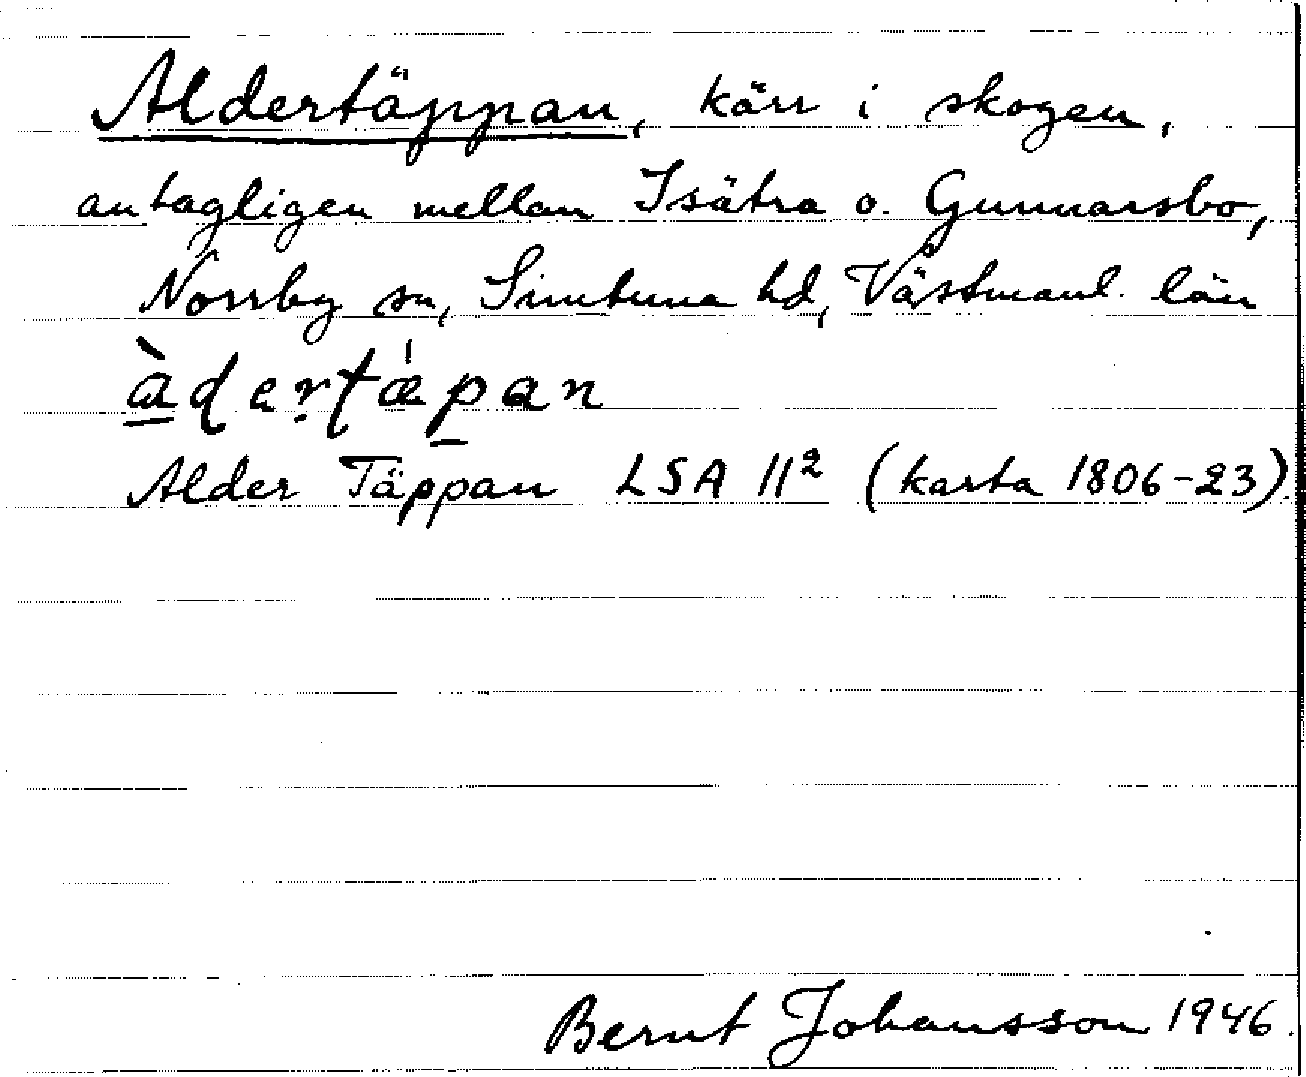 Aldertäppan, kärr i skogen,
antagligen mellan Isätra o. Gunnarsbo,
Norrby sn, Simtuna hd, Västmanl. län
àdertæ̍pan
Alder Täppan LSA 11² (karta 1806-23).
Bernt Johansson 1946.